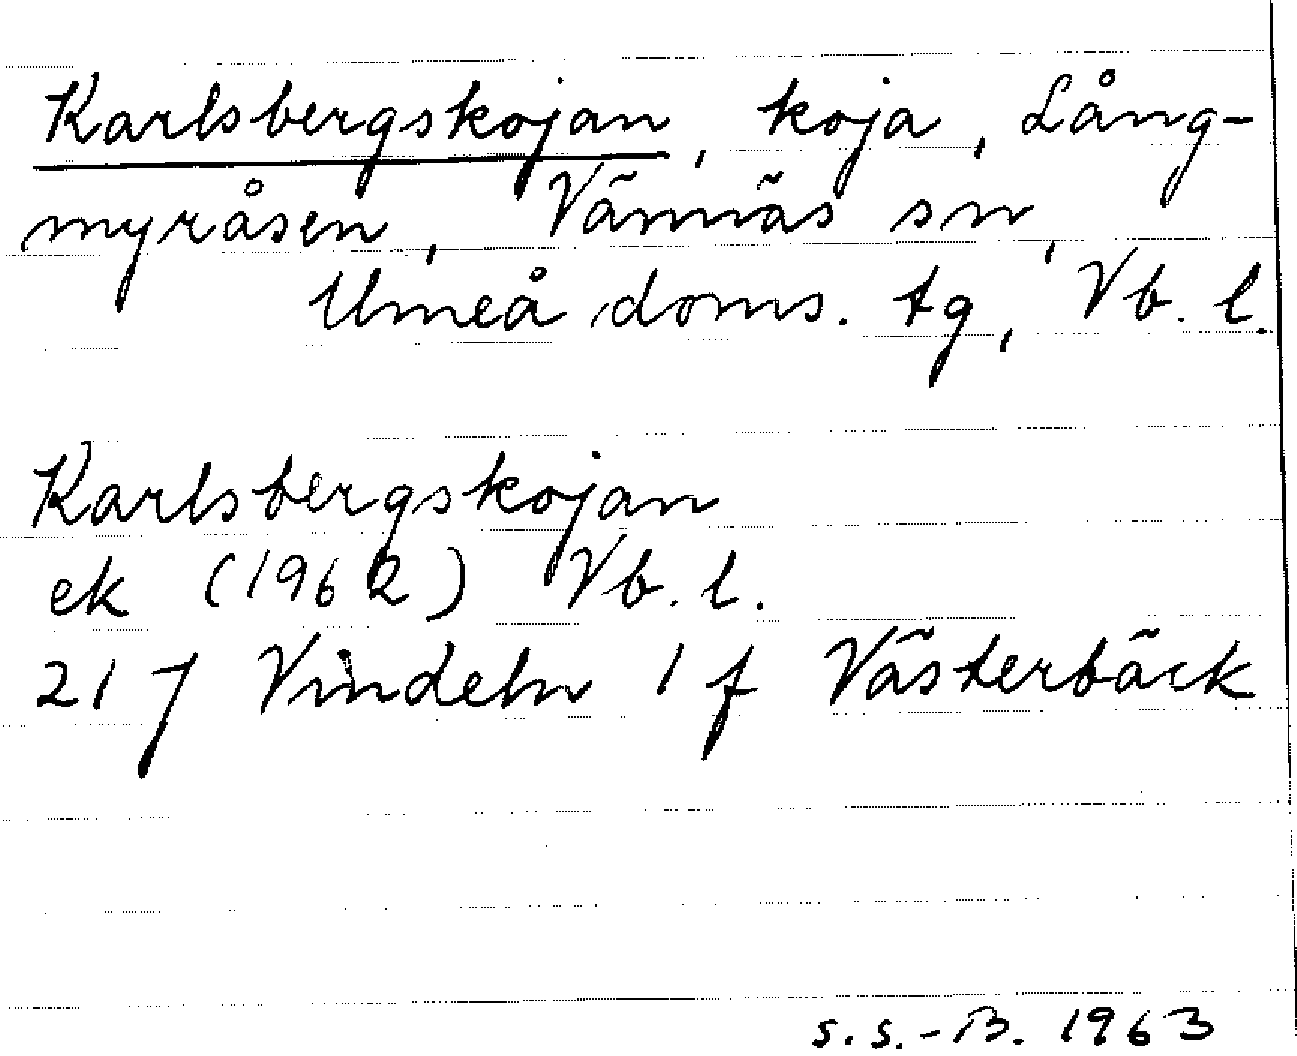 Karlsbergskojan, koja, Lång-
myråsen, Vännäs sn,
Umeå doms. tg, Vb. l.
Karlsbergskojan
ek (1962) Vb. l.
21 J Vindeln 1 f Västerbäck
S.S.-B. 1963